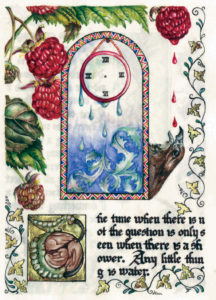 The time when there is n
ot the question is only s
een when there is a sh
ower. Any little thin
g is water.